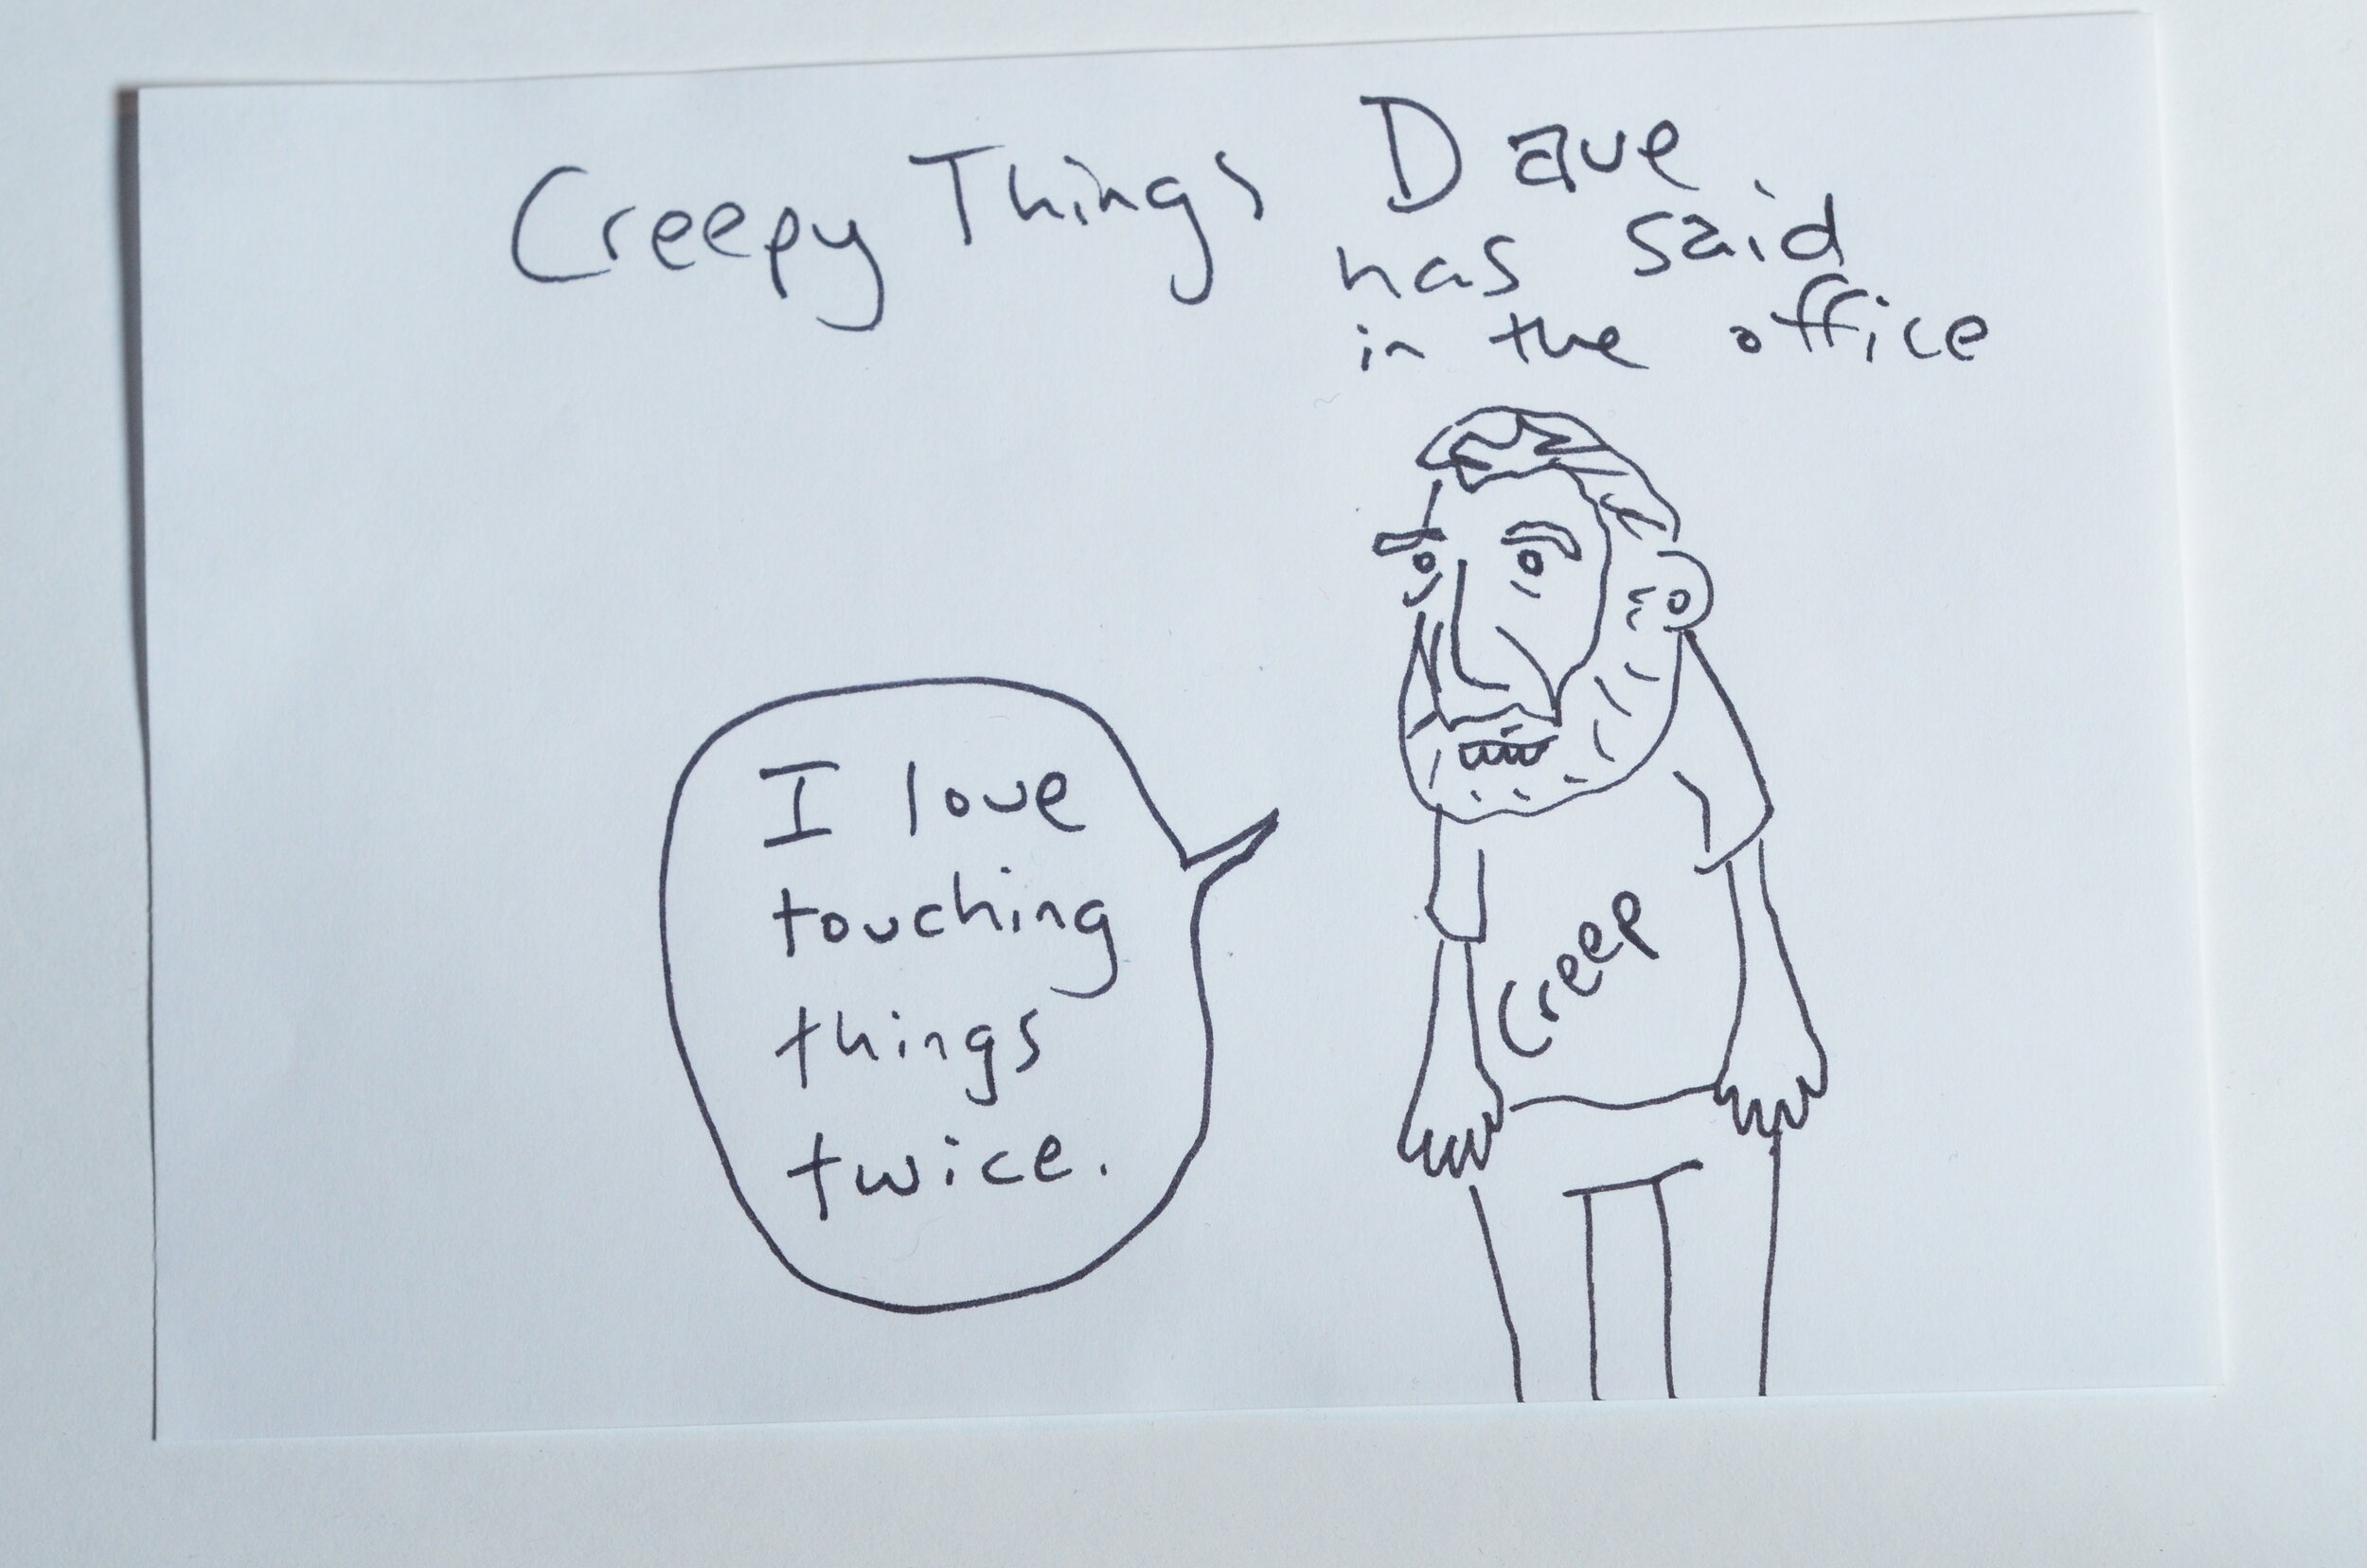 Creepy Things Dave
has said
in the office
I love
touching
things
twice.
Creep